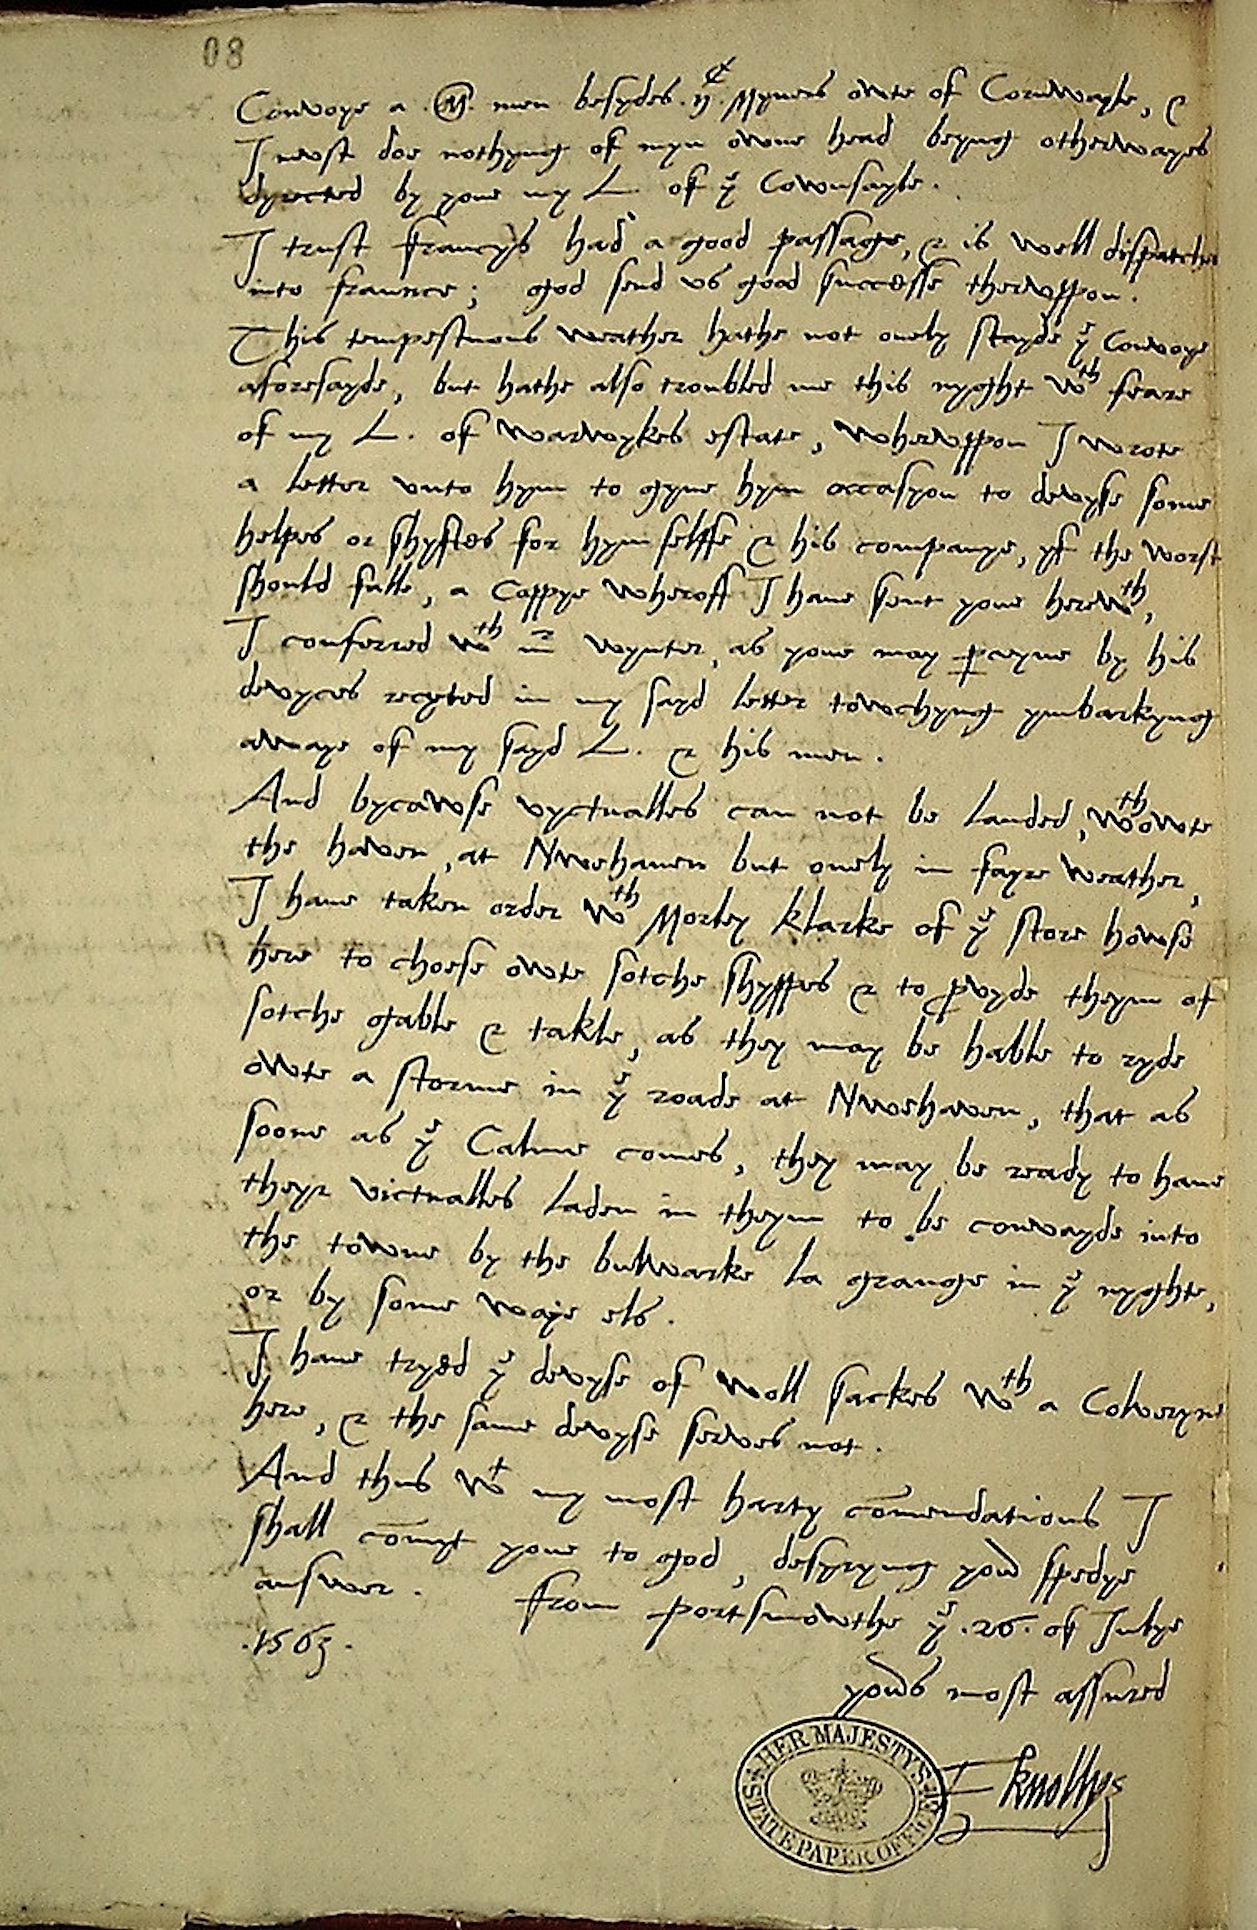 08
Convoye a .M. men besydes .ij.C Myners owte of Cornwayle, &
I must doe nothyng of myn owne head beyng otherwayes
dyrected by youe my L of yͤ Cownsayle.
I trust Francys had a good passage, & is well dispatched
into fraunce; god send us good successe theruppon.
This tempestuous weather hathe not onely stayde yͤ Convoye
aforesayde, but hathe also troubled me this nyght wth feare
of my L. of Warwykes estate, wheruppon I wrote
a letter unto hym to gyve hym occasyon to devyse some
helpes or shyftes for hym selffe & his companye, yf the worst
should falle, a Coppye wheroff I have sent youe herewth,
I conferred wth mr wynter, as youe may pceyve by his
devyces recyted in my sayd letter towchyng ymbarkyng
awaye of my sayd L. & his men.
And bycawse vyctualles can not be landed, wthowte
the haven, at Nwehaven but onely in fayre weather,
I have taken order wth Morley klarke of yͤ store howse
here to choese owte sotche shyppes & to pvyde theym of
sotche gable & takle, as they may be hable to ryde
owte a storme in yͤ roade at Nwehaven, that as
soone as yͤ Calme comes, they may be ready to have
theyr victualles laden in theym to be convayde into
the towne by the bulwarke la grange in yͤ nyghte,
or by some waye els.
I have tryed yͤ devyse of woll sackes wth a Colveryne
here, & the same devyse serves not.
And thus wt my most harty comendations I
shall comyt youe to god, desyryng yor spedye
answer. From portsmowthe yͤ .26. of Julye
.1563.
yors most assured
F knollys
HER MAJESTY'S
STATE PAPER OFFICE